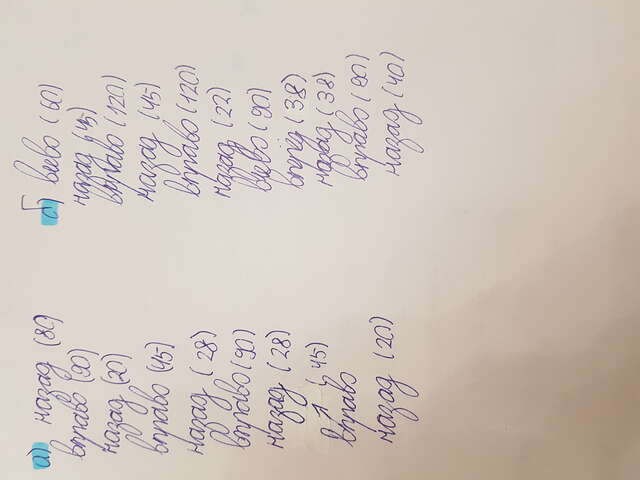 а) назад (80)
вправо (90)
назад (20)
вправо (45)
назад (28)
вправо (90)
назад (28)
(45)
вправо
назад (20)
б) влево (60)
назад (45)
вправо (120)
назад (45)
вправо (120)
назад (22)
влево (90)
вперёд (38)
назад (38)
вправо (90)
назад (40)